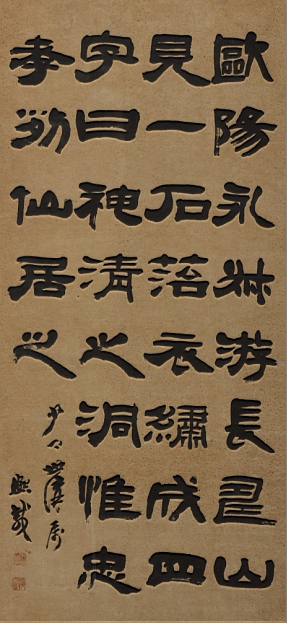 歐陽永叔游長山
見一石苔衣繡成四
字曰神清之洞惟忠
孝列仙居之
熙載